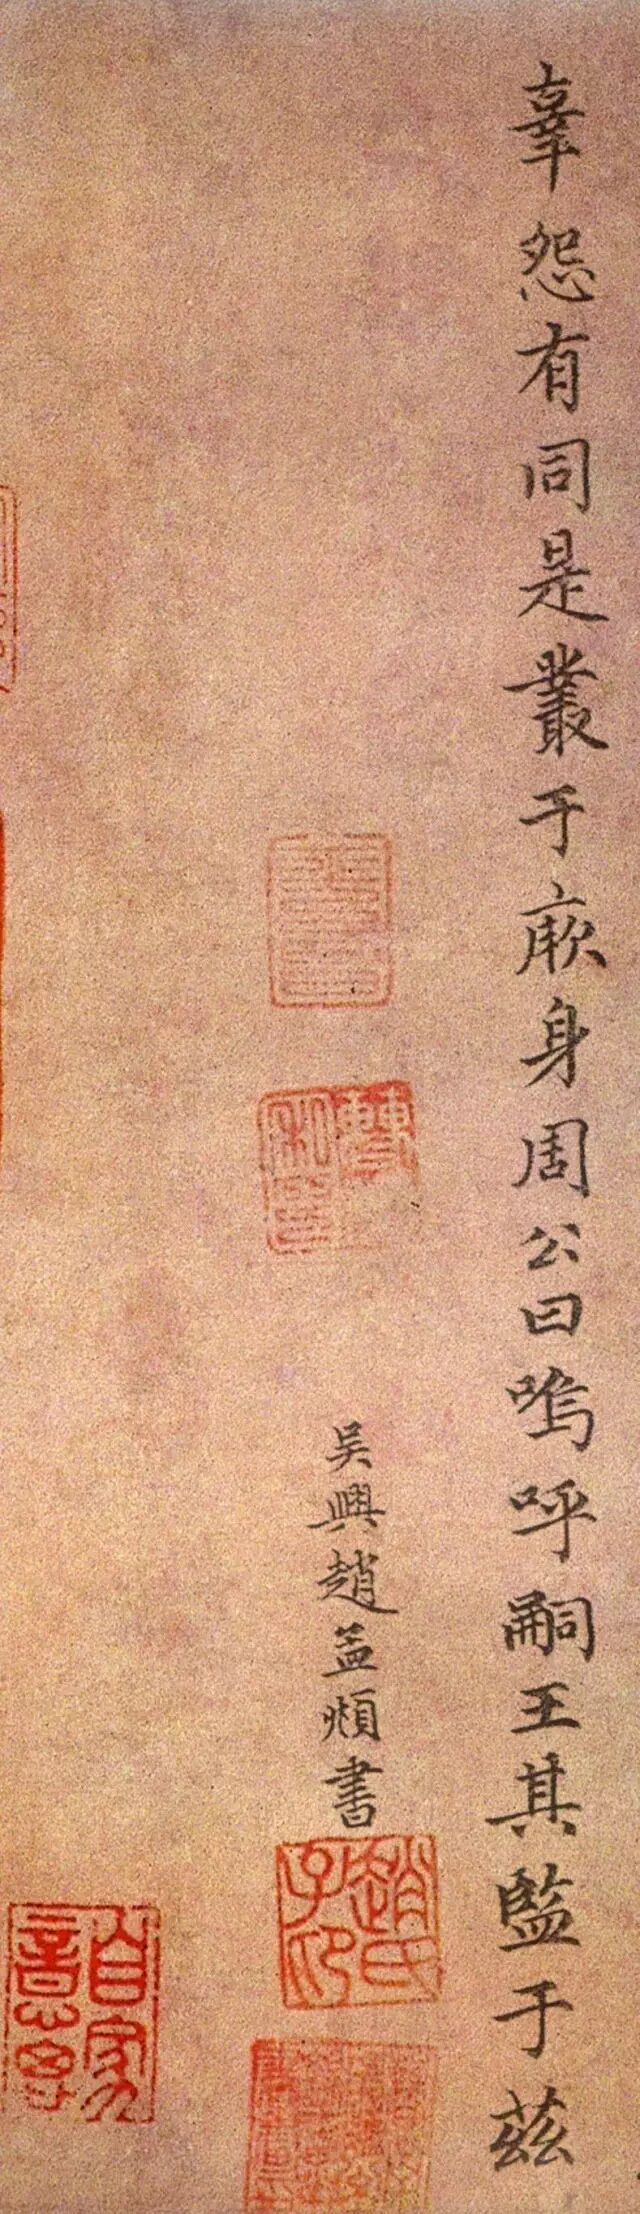 辜怨有同是叢于厥身周公曰嗚呼嗣王其監于茲
吳興趙孟頫書
趙氏子印